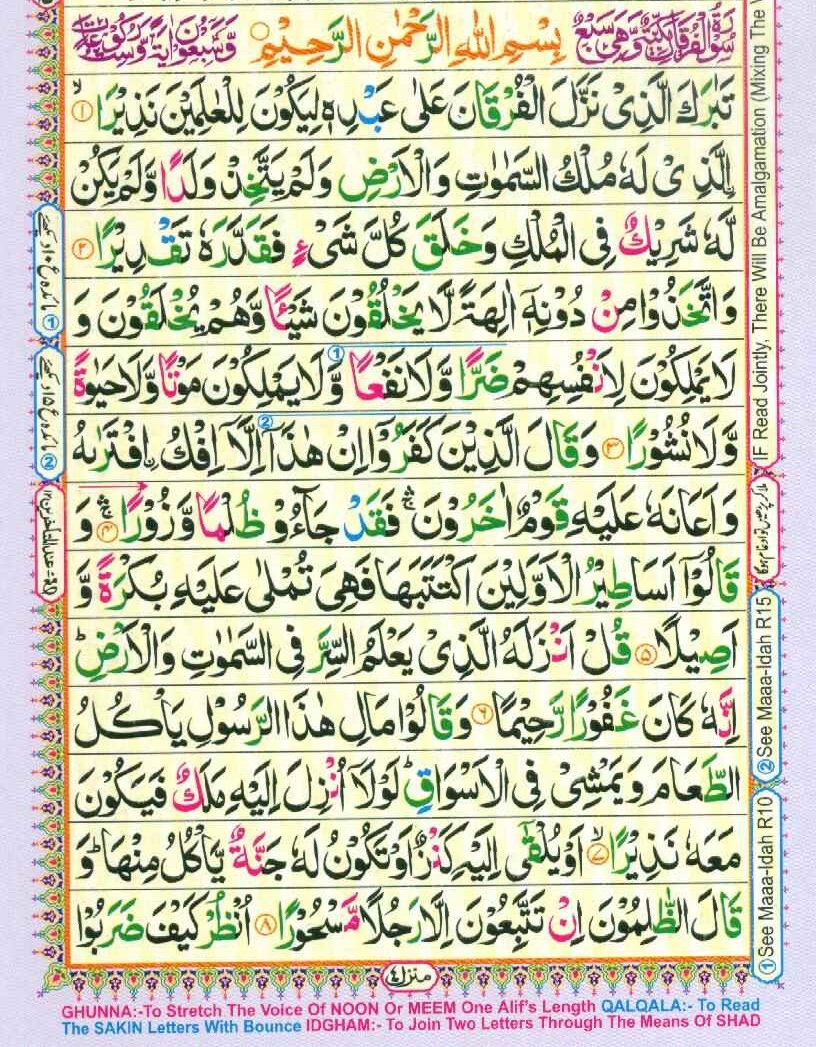 سُوْرَةُ الْفُرْقَانِ مَكِّيَّةٌ وَّهِيَ سَبْعٌ
بِسْمِ اللهِ الرَّحْمٰنِ الرَّحِيْمِ
وَّسَبْعُوْنَ اٰيَةً وَّسِتُّ رُكُوْعَاتٍ
تَبٰرَكَ الَّذِیْ نَزَّلَ الْفُرْقَانَ عَلٰى عَبْدِهٖ لِيَكُوْنَ لِلْعٰلَمِيْنَ نَذِيْرًا ۙ۝۱
اِۨلَّذِیْ لَهٗ مُلْكُ السَّمٰوٰتِ وَالْاَرْضِ وَلَمْ يَتَّخِذْ وَلَدًا وَّلَمْ يَكُنْ
لَّهٗ شَرِيْكٌ فِی الْمُلْكِ وَخَلَقَ كُلَّ شَیْءٍ فَقَدَّرَهٗ تَقْدِيْرًا ۝۲
وَاتَّخَذُوْا مِنْ دُوْنِهٖۤ اٰلِهَةً لَّا يَخْلُقُوْنَ شَيْـًٔا وَّهُمْ يُخْلَقُوْنَ وَ
لَا يَمْلِكُوْنَ لِاَنْفُسِهِمْ ضَرًّا وَّلَا نَفْعًا وَّلَا يَمْلِكُوْنَ مَوْتًا وَّلَا حَيٰوةً
وَّلَا نُشُوْرًا ۝۳ وَقَالَ الَّذِيْنَ كَفَرُوْۤا اِنْ هٰذَاۤ اِلَّاۤ اِفْكُ ِۨافْتَرٰىهُ
وَاَعَانَهٗ عَلَيْهِ قَوْمٌ اٰخَرُوْنَ ۛۚ فَقَدْ جَآءُوْ ظُلْمًا وَّزُوْرًا ۛۚ۝۴ وَ
قَالُوْۤا اَسَاطِيْرُ الْاَوَّلِيْنَ اكْتَتَبَهَا فَهِیَ تُمْلٰى عَلَيْهِ بُكْرَةً وَّ
اَصِيْلًا ۝۵ قُلْ اَنْزَلَهُ الَّذِیْ يَعْلَمُ السِّرَّ فِی السَّمٰوٰتِ وَالْاَرْضِ ؕ
اِنَّهٗ كَانَ غَفُوْرًا رَّحِيْمًا ۝۶ وَقَالُوْا مَالِ هٰذَا الرَّسُوْلِ يَاْكُلُ
الطَّعَامَ وَيَمْشِیْ فِی الْاَسْوَاقِ ؕ لَوْلَاۤ اُنْزِلَ اِلَيْهِ مَلَكٌ فَيَكُوْنَ
مَعَهٗ نَذِيْرًا ۙ۝۷ اَوْ يُلْقٰۤى اِلَيْهِ كَنْزٌ اَوْ تَكُوْنُ لَهٗ جَنَّةٌ يَّاْكُلُ مِنْهَا ؕ وَ
قَالَ الظّٰلِمُوْنَ اِنْ تَتَّبِعُوْنَ اِلَّا رَجُلًا مَّسْحُوْرًا ۝۸ اُنْظُرْ كَيْفَ ضَرَبُوْا
منزل ٤
GHUNNA:-To Stretch The Voice Of NOON Or MEEM One Alif's Length QALQALA:- To Read
The SAKIN Letters With Bounce IDGHAM:- To Join Two Letters Through The Means Of SHAD
IF Read Jointly, There Will Be Amalgamation (Mixing The
② See Maaa-Idah R15
① See Maaa-Idah R10